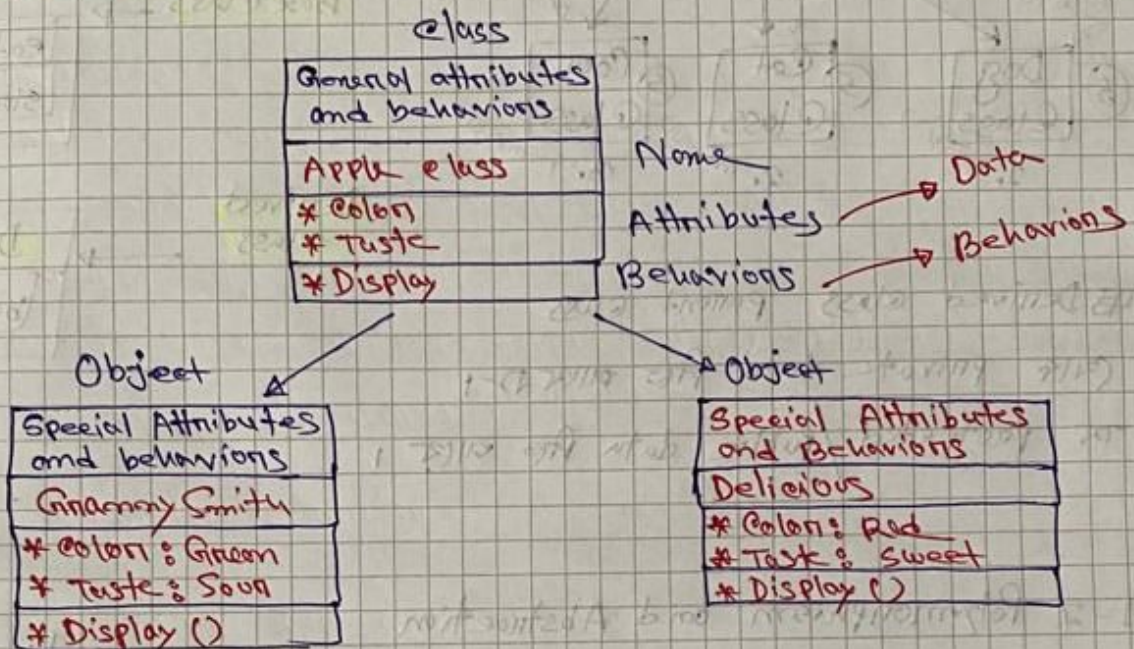 Class
General attributes
and behaviors
Apple class
* Color
* Taste
* Display
Name
Attributes
Behaviors
Data
Behaviors
Object
Special Attributes
and behaviors
Granny Smith
* Color : Green
* Taste : Sour
* Display ()
Object
Special Attributes
and Behaviors
Delicious
* Color : Red
* Task : Sweet
* Display ()